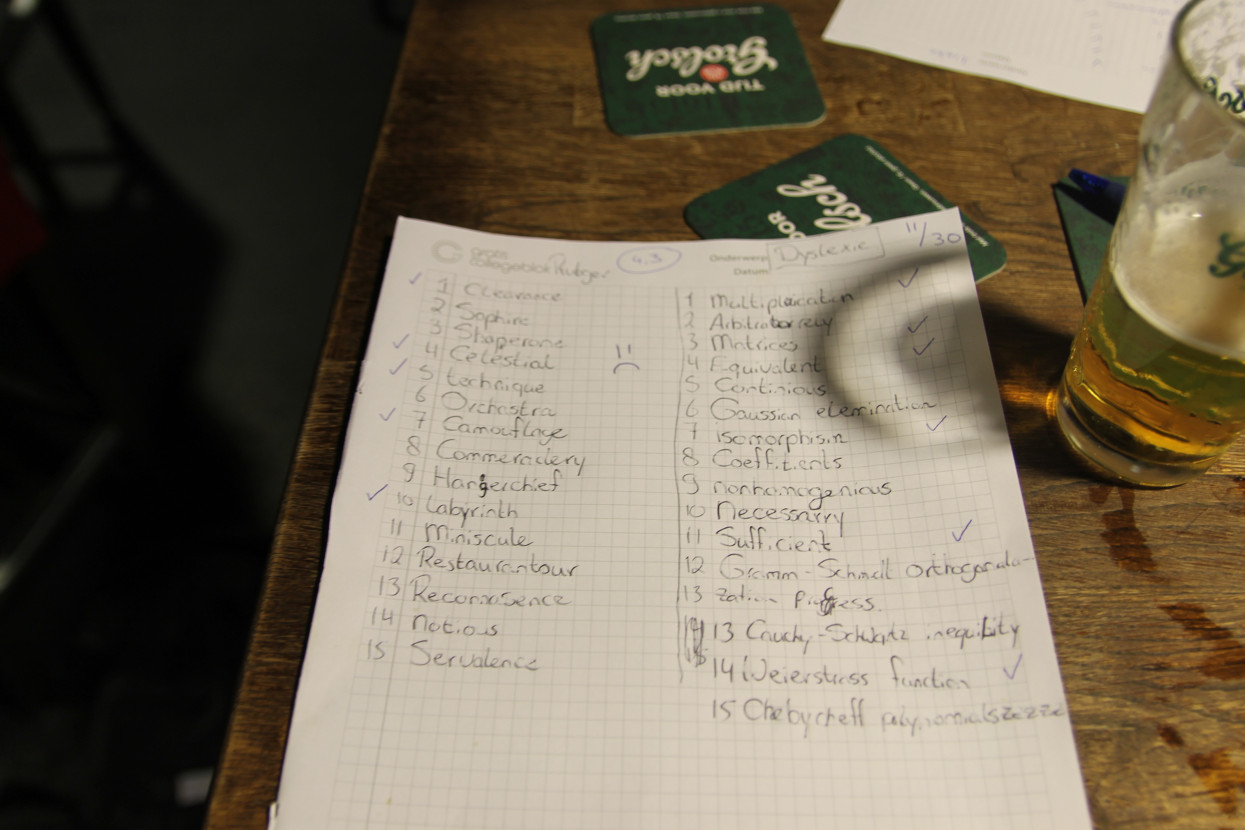 Grolsch
TIJD VOOR
Rutger
4.3
Onderwerp
Dyslexic
11/30
Datum
1 Clearance
2 Saphire
3 Shaperone
4 Celestial
5 technique
6 Orchastra
7 Camouflage
8 Commeradery
9 Hangerchief
10 Labyrinth
11 Miniscule
12 Restaurantour
13 Reconnasence
14 notious
15 Servalence
1 Multiplaicatin
2 Arbitratorrely
3 Matrices
4 Equivalent
5 Continious
6 Gaussian elemination
7 isomorphism
8 Coefficients
9 nonhomogenious
10 Necessarry
11 Sufficient
12 Gramm-Schmell orthogonala-
13 zation
13 Cauchy-Schwatz inequility
14 Weierstrass function
15 Chebycheff polynomialszezezze